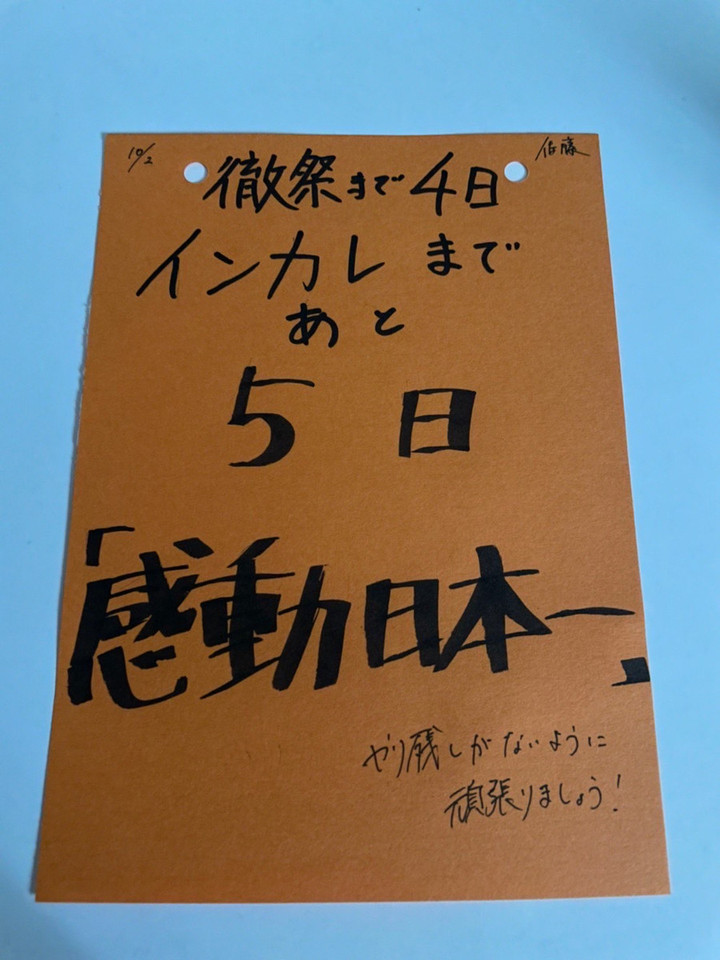 10/2
佐藤
徹祭まで4日
インカレまで
あと
5日
「感動日本一」
やり残しがないように
頑張りましょう!